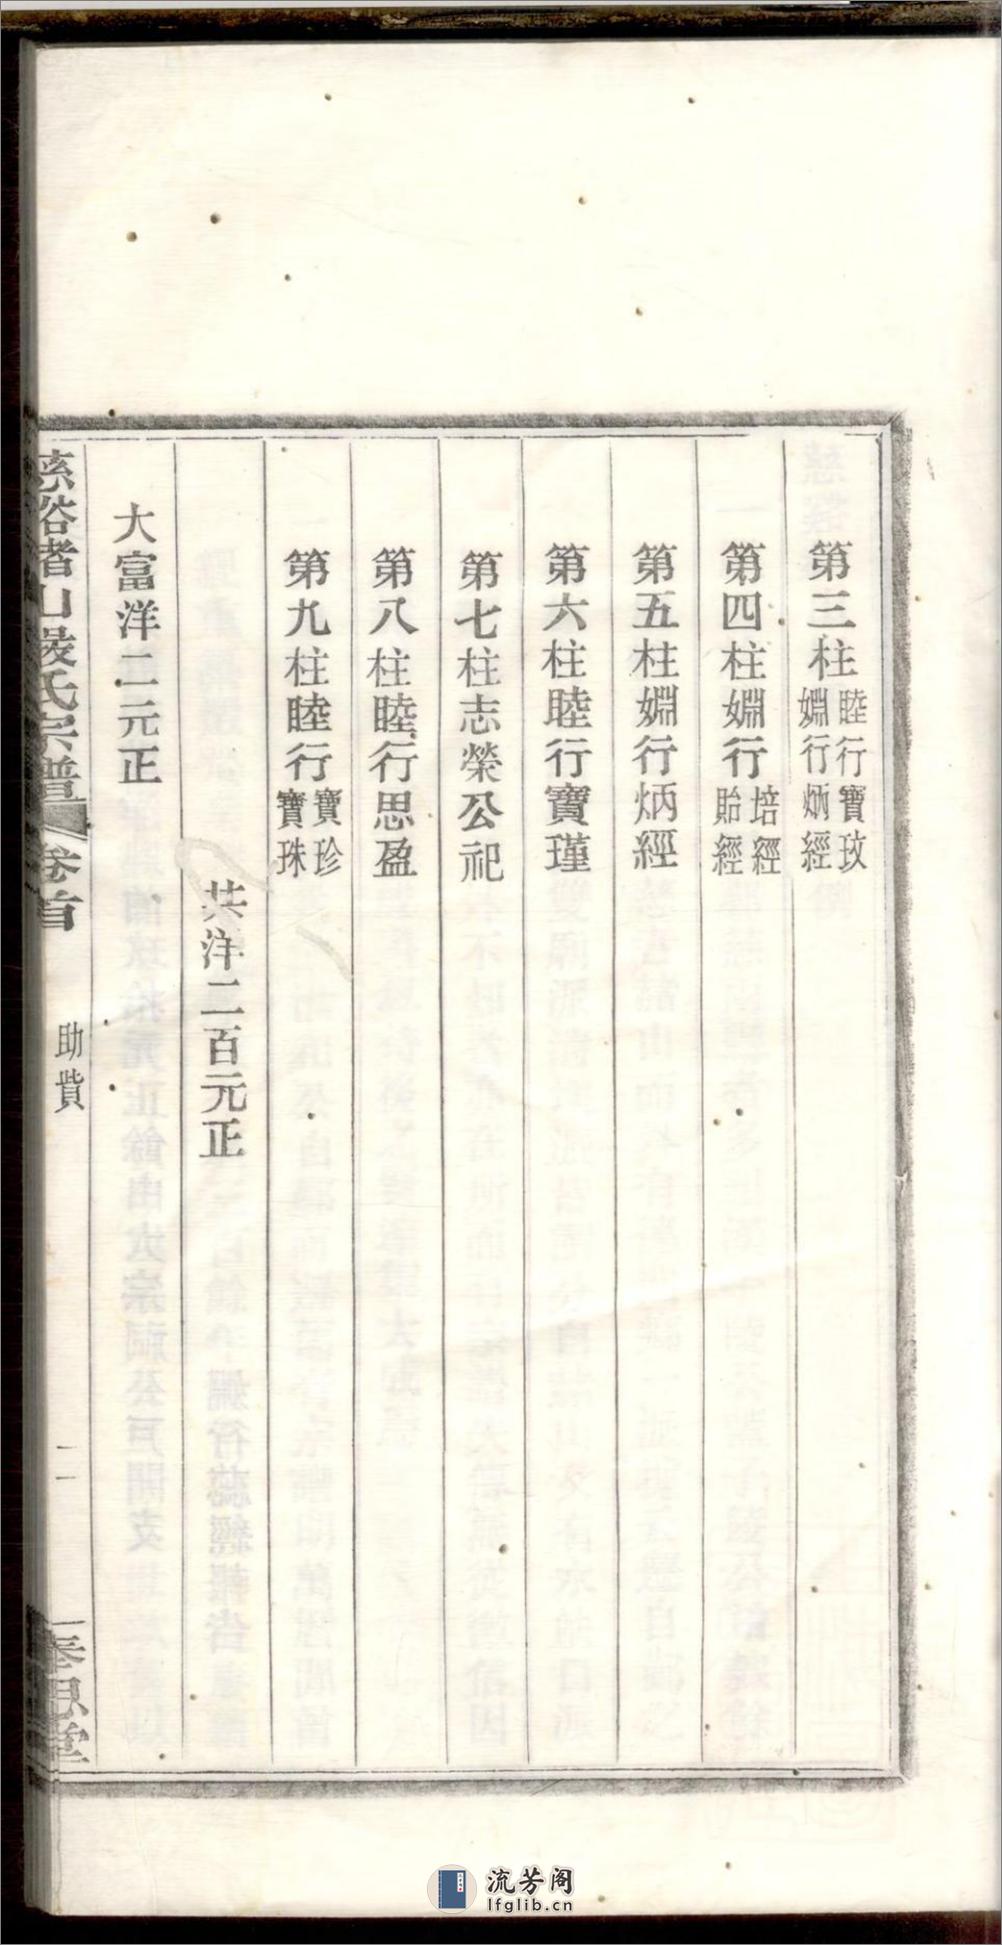 第三柱睦行寶玟
婣行炳經
第四柱婣行培經
貽經
第五柱婣行炳經
第六柱睦行寶瑾
第七柱志榮公祀
第八柱睦行思盈
第九柱睦行寶珍
寶珠
共洋二百元正
大富洋二元正
山嚴氏宗譜 卷首 助貲 二 奉思堂
流芳阁
lfglib.cn